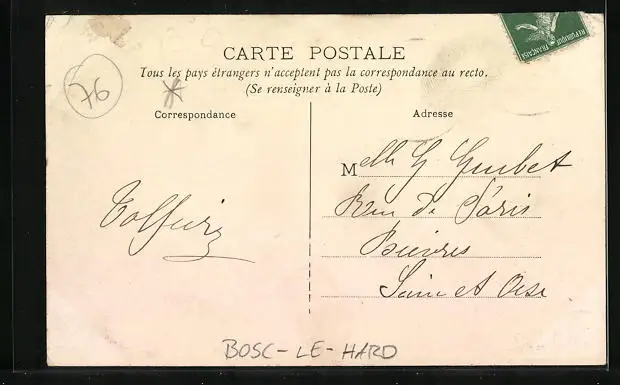 REPUBLIQUE FRANÇAISE
CARTE POSTALE
Tous les pays étrangers n'acceptent pas la correspondance au recto.
(Se renseigner à la Poste)
76
Correspondance
Adresse
Melle G Guibet
Rue de Paris
Bièvres
Seine et Oise
BOSC-LE-HARD